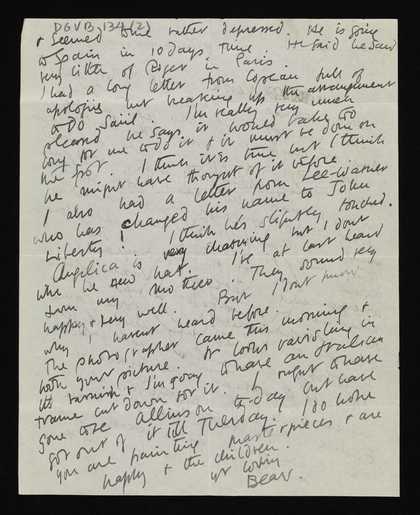 DGVB 134(2)
& seemed rather depressed. He is going
to Spain in 10 days time. He said he saw
very little of Roger in Paris.
I had a long letter from Copeau full of
apologies but breaking up the arrangement
to do Saül. I'm really very much
pleased he says it would take too
long for me to do it & it must be done on
the spot. I think its true but I think
he might have thought of it before.
I also had a letter from Lee-Warner
who has changed his name to John
Liberty! I think he's slightly touched.
Angelica is very charming but I dont
like her new hat. I've at last heard
from my mother. They sound very
happy & very well. But I dont know
why I havent heard before.
The photographer came this morning &
took your picture. It looks ravishing in
its varnish & I'm going to have an Italian
frame cut down for it. I ought to have
gone to see Allinson today but have
got out of it till Thursday. I do hope
you are painting masterpieces & are
happy & the children.
yr loving
Bear.